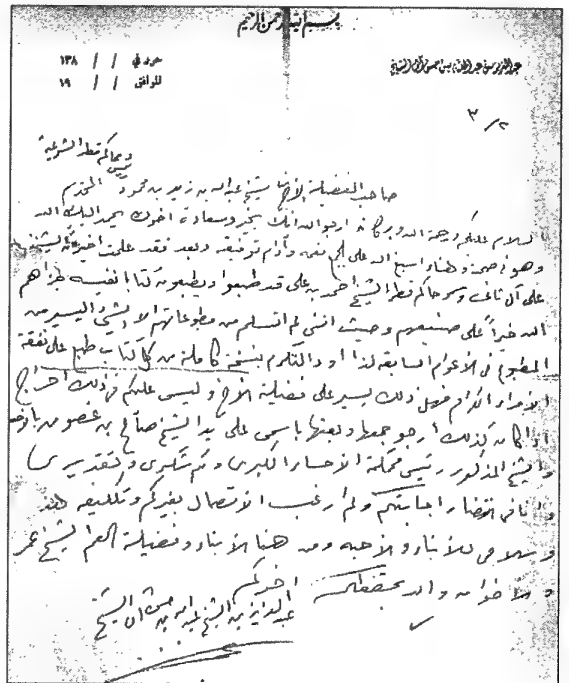 بسم الله الرحمن الرحيم
عبد العزيز بن عبد الله بن حسن آل الشيخ
حرر في / / ١٣٨
الموافق / / ١٩
٣/٢
رئيس محاكم قطر الشرعية
صاحب الفضيلة الأخ الشيخ عبد الله بن زيد بن محمود المحترم
السلام عليكم ورحمة الله وبركاته أرجو الله انك بخير وسعادة أخوك يحمد إليك الله
وهو في صحة وهناء اسبغ الله على الجميع نعمه وأدام توفيقه وبعد فقد علمت أخيرا أن الشيخ
علي آل ثاني وسمو حاكم قطر الشيخ أحمد بن علي قد طبعوا ويطبعون كتبا نفيسة جزاهم
الله خيراً على صنيعهم وحيث انني لم اتسلم من مطبوعاتهم الا الشيء اليسير من
المطبوع في الأعوام السابقة لذا أود التكرم بنسخة كاملة من كل كتاب طبع على نفقة
الأمراء الكرام فهل ذلك يسير على فضيلة الأخ وليس عليكم في ذلك احراج
اذا كان كذلك أرجو جمعها وبعثها باسمي على يد الشيخ صالح بن غصون
والشيخ المذكور رئيس محكمة الأحساء الكبرى ولكم شكري وتقديري
وانا في انتظار اجابتكم ولم ارغب الاتصال بغيركم وتكليفه
وسلامي للأبناء والأحبه ومن هنا الأبناء وفضيلة العم الشيخ عمر
والاخوان والله يحفظكم
أخوكم
عبد العزيز بن الشيخ عبد الله بن حسن آل الشيخ